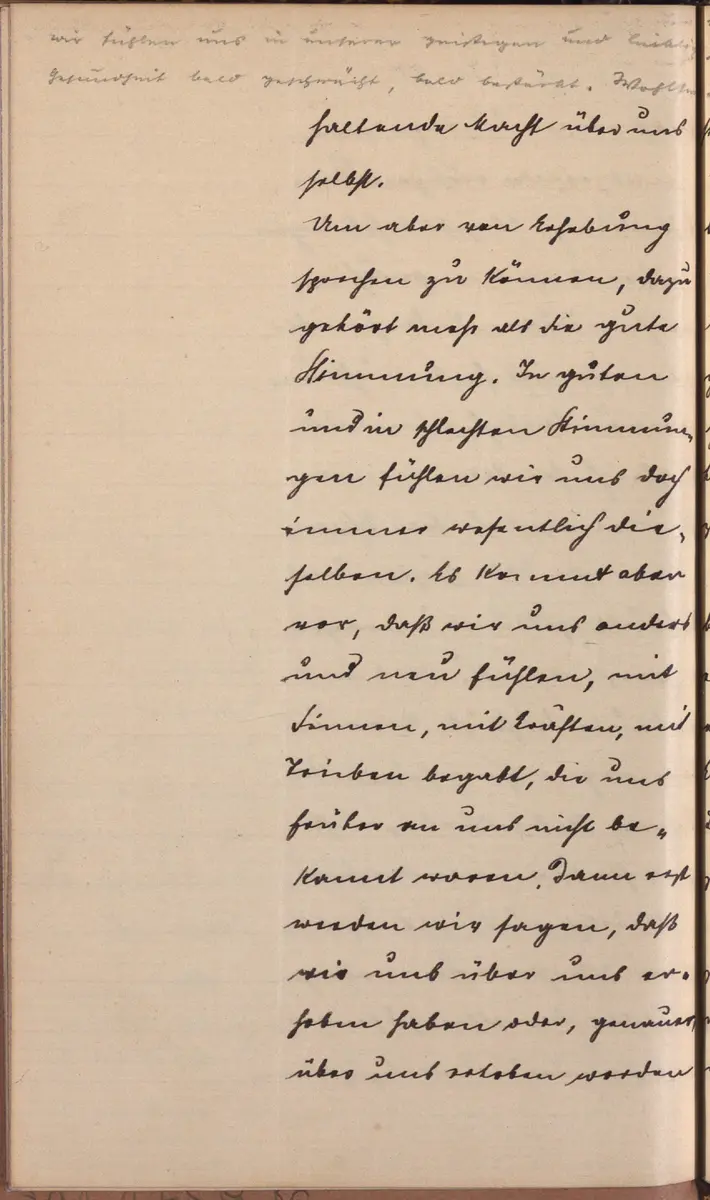 wir fühlen uns in unserer geistigen und leiblichen
Gesundheit bald geschwächt, bald bestärkt.
haltende Macht über uns
selbst.
Um aber von Erhebung
sprechen zu können, dazu
gehört mehr als die gute
Stimmung. In guten
und in schlechten Stimmun„
gen fühlen wir uns doch
immer wesentlich die„
selben. Es kommt aber
vor, daß wir uns anders
und neu fühlen, mit
Sinnen, mit Kräften, mit
Trieben begabt, die uns
früher an uns nicht be„
kannt waren. Dann erst
werden wir sagen, daß
wir uns über uns er„
hoben haben oder, genauer,
über uns erhoben worden